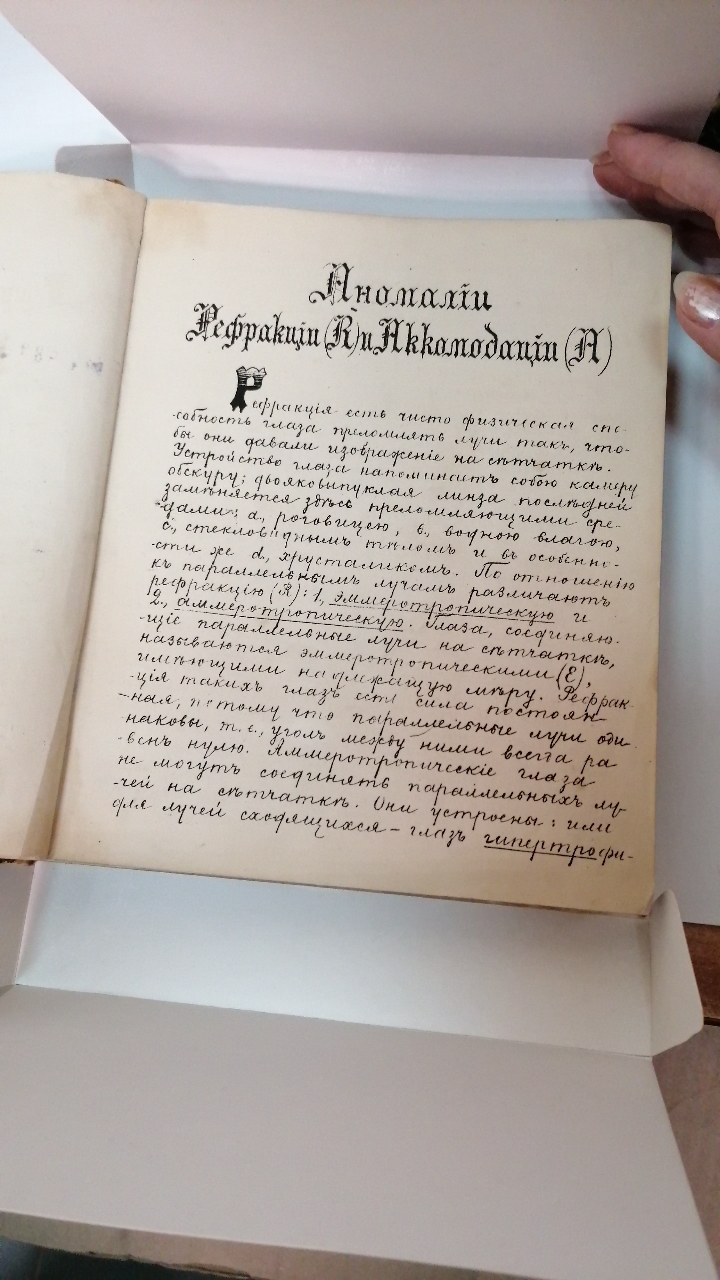 Аномалiи
Рефракцiи (R) и Аккомодацiи (А)
Рефракцiя есть чисто физическая спо-
собность глаза преломлять лучи такъ, что-
бы они давали изображенiе на сѣтчаткѣ.
Устройство глаза напоминаетъ собою камеру
обскуру; двояковипуклая линза послѣдней
замѣняется здѣсь преломляющими сре-
дами: а, роговицею, в, водною влагою,
с, стекловиднымъ тѣломъ и въ особенно-
сти же d, хрусталикомъ. По отношенiю
къ параллельнымъ лучамъ различаютъ
рефракцiю (R): 1, эмметропическую и
2, амметропическую. Глаза, соединяю-
щiе параллельные лучи на сѣтчаткѣ,
называются эмметропическими (Е),
имѣющими надлежащую мѣру. Рефрак-
цiя такихъ глазъ есть сила постоян-
ная, потому что параллельные лучи оди-
наковы, т. е., уголъ между ними всегда ра-
венъ нулю. Амметропическiе глаза
не могутъ соединять параллельныхъ лу-
чей на сѣтчаткѣ. Они устроены: или
для лучей сходящихся – глазъ гипертрофи-